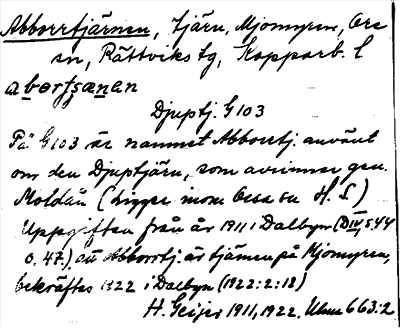 Abborrtjärnen, Tjärn, Mjomyren, Ore
sn, Rättviks tg, Kopparb. l
abортʂanen
Djuptj. G 103
På G 103 är namnet Abborrtj. använt
om den Djuptjärn, som avrinner gm.
Moldån (ligger inom Orsa sn H. G)
Uppgiften från år 1911 i Dalbyn (DIV, s. 44
o. 47), att Abborrtj. är tjärnen på Mjomyren,
bekräftas 1922 i Dalbyn (1922:2:18)
H. Geijer 1911, 1922. Ulma 663:2